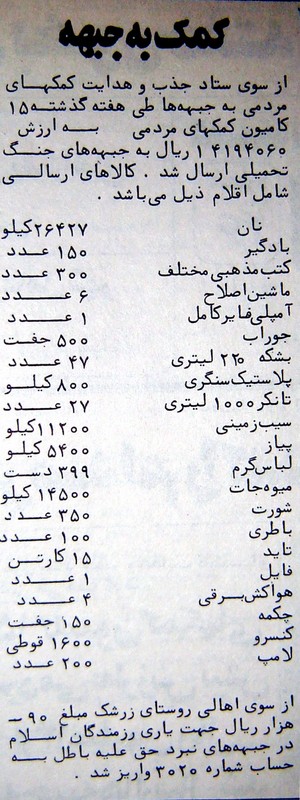 کمک به جبهه
از سوی ستاد جذب و هدایت کمکهای
مردمی به جبهه‌ها طی هفته گذشته ۱۵
کامیون کمکهای مردمی به ارزش
۱۴۱۹۴۰۶۰ ریال به جبهه‌های جنگ
تحمیلی ارسال شد . کالاهای ارسالی
شامل اقلام ذیل می‌باشد .
نان ۲۶۴۲۷ کیلو
بادگیر ۱۵۰ عدد
کتب مذهبی مختلف ۳۰۰ عدد
ماشین اصلاح ۶ عدد
آمپلی فایر کامل ۱ عدد
جوراب ۵۰۰ جفت
بشکه ۲۲۰ لیتری ۴۷ عدد
پلاستیک سنگری ۸۰۰ کیلو
تانکر ۱۰۰۰ لیتری ۲۷ عدد
سیب زمینی ۱۱۲۰۰ کیلو
پیاز ۵۴۰۰ کیلو
لباس گرم ۳۹۹ دست
میوه‌جات ۱۴۵۰۰ کیلو
شورت ۳۵۰ عدد
باطری ۱۰۰ عدد
تاید ۱۵ کارتن
فایل ۱ عدد
هواکش برقی ۴ عدد
چکمه ۱۵۰ جفت
کنسرو ۱۶۰۰ قوطی
لامپ ۲۰۰ عدد
از سوی اهالی روستای زرشک مبلغ ۹۰ –
هزار ریال جهت یاری رزمندگان اسلام
در جبهه‌های نبرد حق علیه باطل به
حساب شماره ۳۰۲۰ واریز شد .